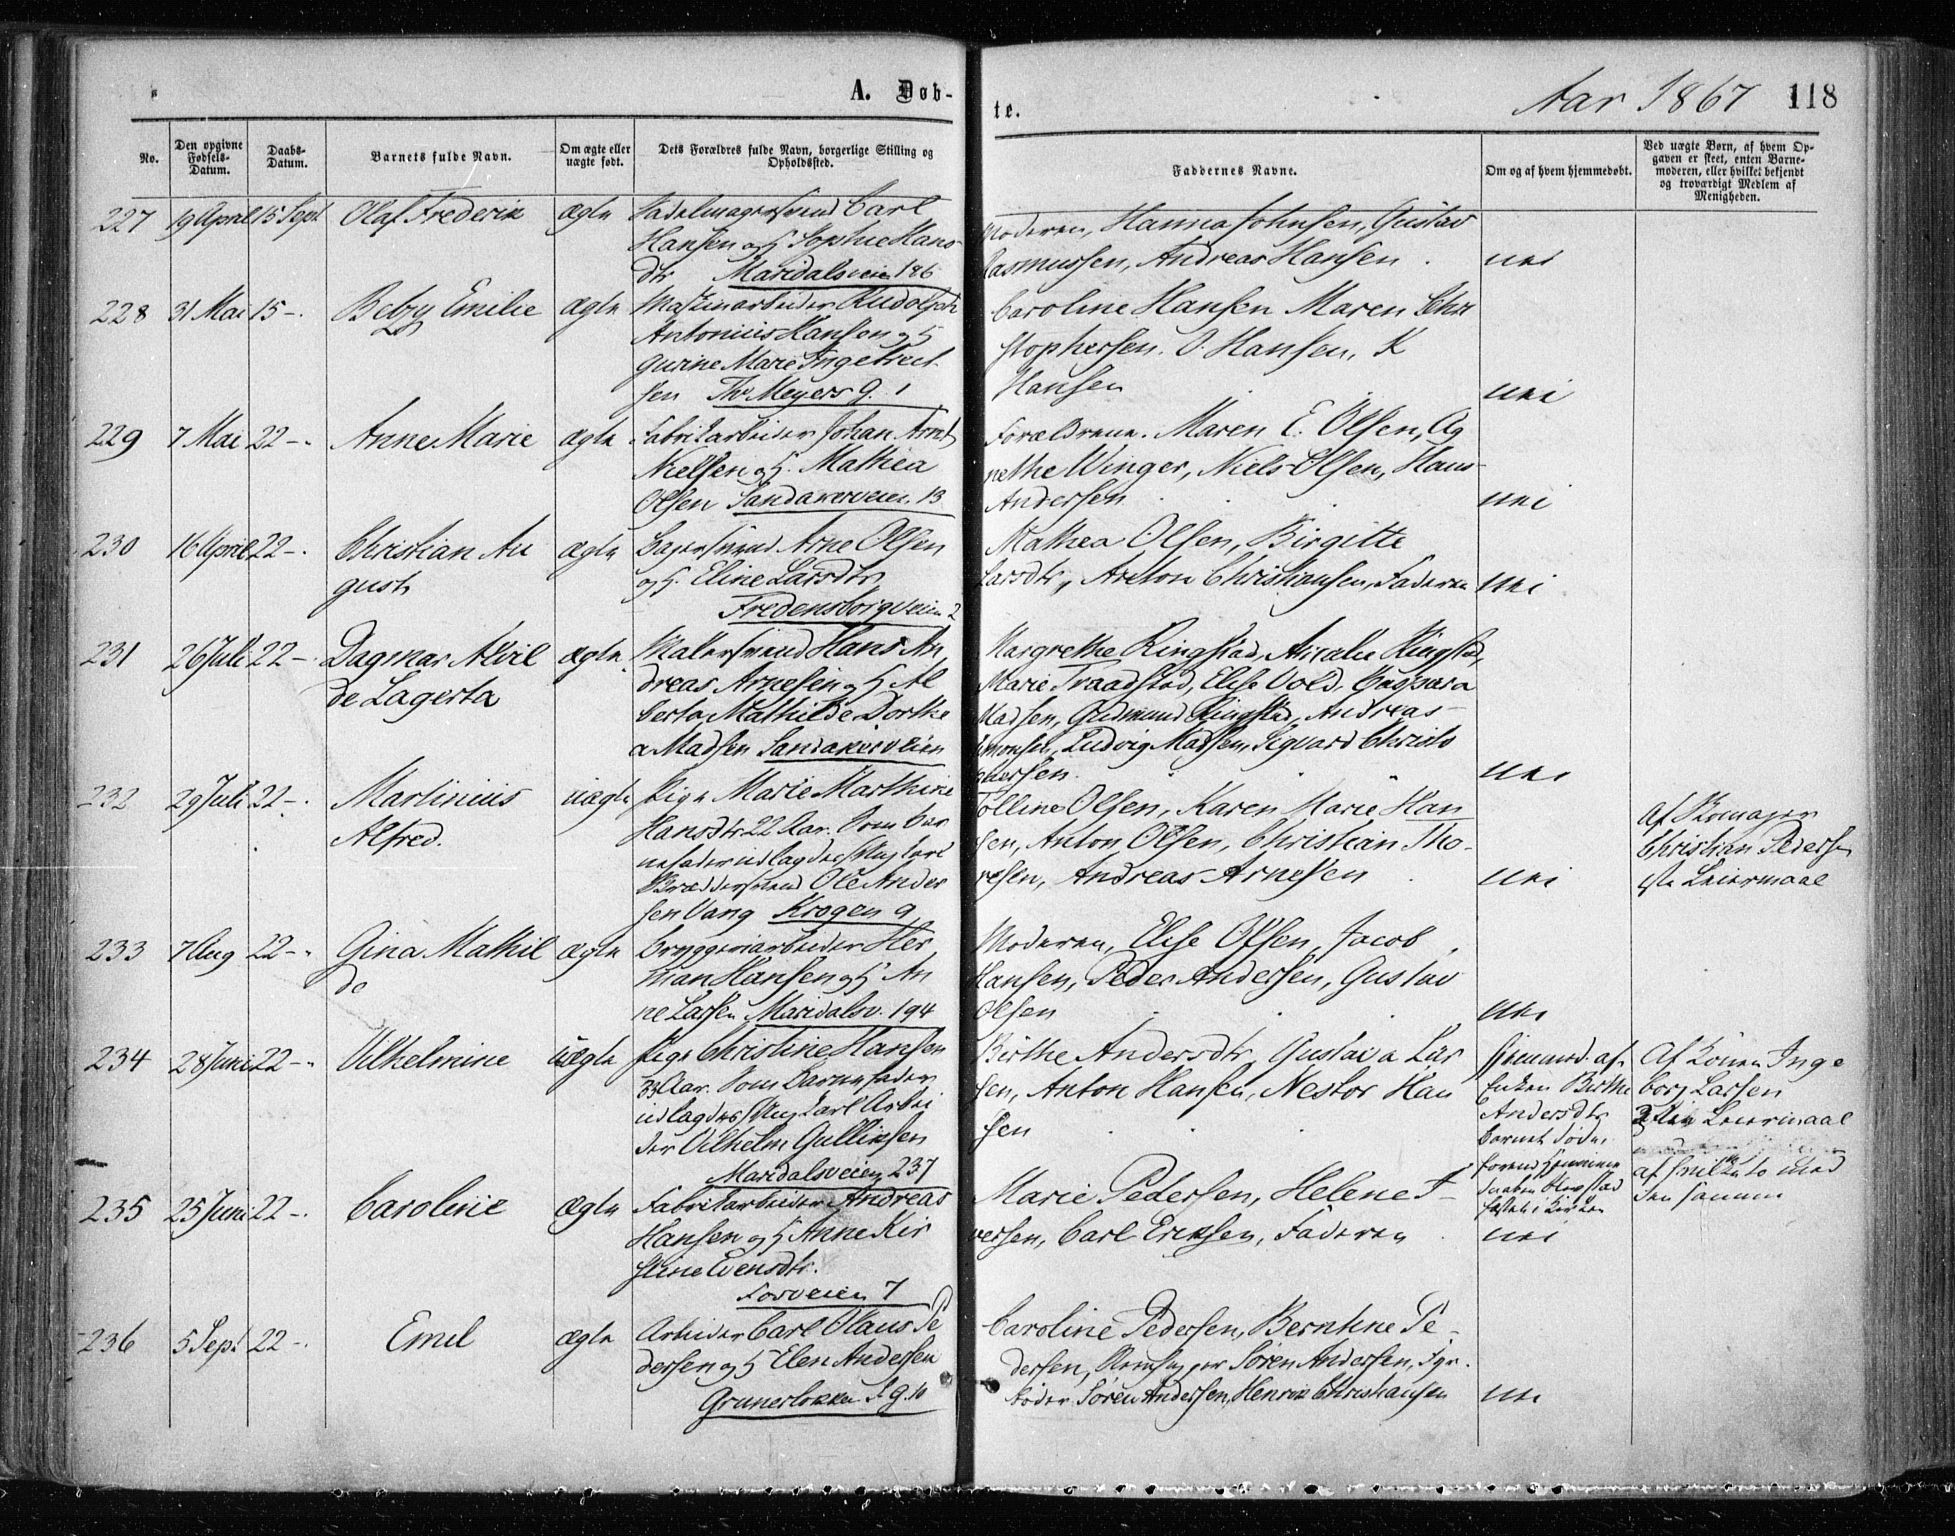 A. Døb-
te.
Aar 1867
118
No.
Den opgivne Fødsels-Datum.
Daabs-Datum.
Barnets fulde Navn.
Om ægte eller uægte født.
Dets Forældres fulde Navn, borgerlige Stilling og Opholdssted.
Faddernes Navne.
Om og af hvem hjemmedøbt.
Ved uægte Børn, af hvem Op-
gaven er skeet, enten Barne-
moderen, eller hvilket bekjendt
og troværdigt Medlem af
Menigheden.
227 19 April 15 Sept Olaf Frederik ægte
Sadelmagersvend Carl
Hansen og H. Sophie Hans-
dtr Maridalsveien 186
Moderen, Hanna Johnsen, Gustav
Rasmussen, Andreas Hansen
nei
228 31 Mai 15 -. Betzy Emilie ægte
Maskinarbeider Rudolph
Antonius Hansen og H
Gurine Marie Ingebret
sen Th Meyers G. 1
Caroline Hansen Maren Chri
stophersen. O. Hansen, K
Hansen
nei
229 7 Mai 22 -. Anne Marie ægte
Fabrikarbeider Johan Arnt
Nielsen og H. Mathea
Olsen Sandakerveien 13
Forældrene. Maren E. Olsen, Ag
nethe Winger, Niels Olsen, Hans
Andersen
nei
230 16 April 22 -. Christian Au
gust
ægte
Bagersvend Arne Olsen
og H. Eline Larsdtr
Fredensborgveien 2
Mathea Olsen, Birgitte
Larsdtr, Anton Christiansen, Faderen
nei
231 26 Juli 22 - Dagmar Alvil
de Lagerta
ægte
Malersvend Hans An
dreas Arnesen og H Al
berta Mathilde Dorthe
a Madsen Sandakerveien
Margrethe Ringstad, Amalie Ringstad,
Marie Traadstad, Elise Vold, Caspara
Madsen, Gudmund Ringstad, Andreas
Simonsen, Ludvig Madsen, Sigvard Christo
phersen
nei
232 29 Juli 22 -. Martinius
Alfred.
uægte
Pige Marie Marthine
Hansdtr 22 Aar. Som Bar
nefader udlagdes Ungkarl
Ole Ander
sen Vang Krogen 9
Tolline Olsen, Karen Marie Han
sen, Anton Olsen, Christian Tho-
resen, Andreas Arnesen
nei
Af Skomager
Christian Pedersen
1ste Leiermaal
233 7 Aug 22 -. Gina Mathil
de
ægte
Bryggeriarbeider Her
man Hansen og H An
ne Larsen Maridalsv. 194
Moderen, Elise Olsen, Jacob
Hansen, Peder Andersen, Gustav
Olsen
nei
234 28 Juni 22 -. Vilhelmine uægte
Pige Christine Hansen
Aar. Som Barnefader
udlagdes Ungkarl Arbei
der Vilhelm Gulliksen
Maridalsveien 237
Birthe Andersdtr, Gustava Lar
sen, Anton Hansen, Nestor Han
sen
Hjemmed. af
Enken Birthe
Andersdtr
Barnet døde
Af Konen Inge
borg Larsen
Leiermaal
af hvilke to med
den samme
235 25 Juni 22 -. Caroline ægte
Fabrikarbeider Andreas
Hansen og H Anne Kir
stine Evensdtr.
Fosveien 7
Marie Pedersen, Helene I-
versen, Carl Eriksen, Faderen
nei
236 5 Sept 22 -. Emil ægte
Arbeider Carl Olaus Pe
dersen og H Elen Andersen
Grunerløkken S g. 10
Caroline Pedersen, Berntine Pe-
dersen, Søren Andersen,
Søren Andersen, Henrik Christiansen
nei